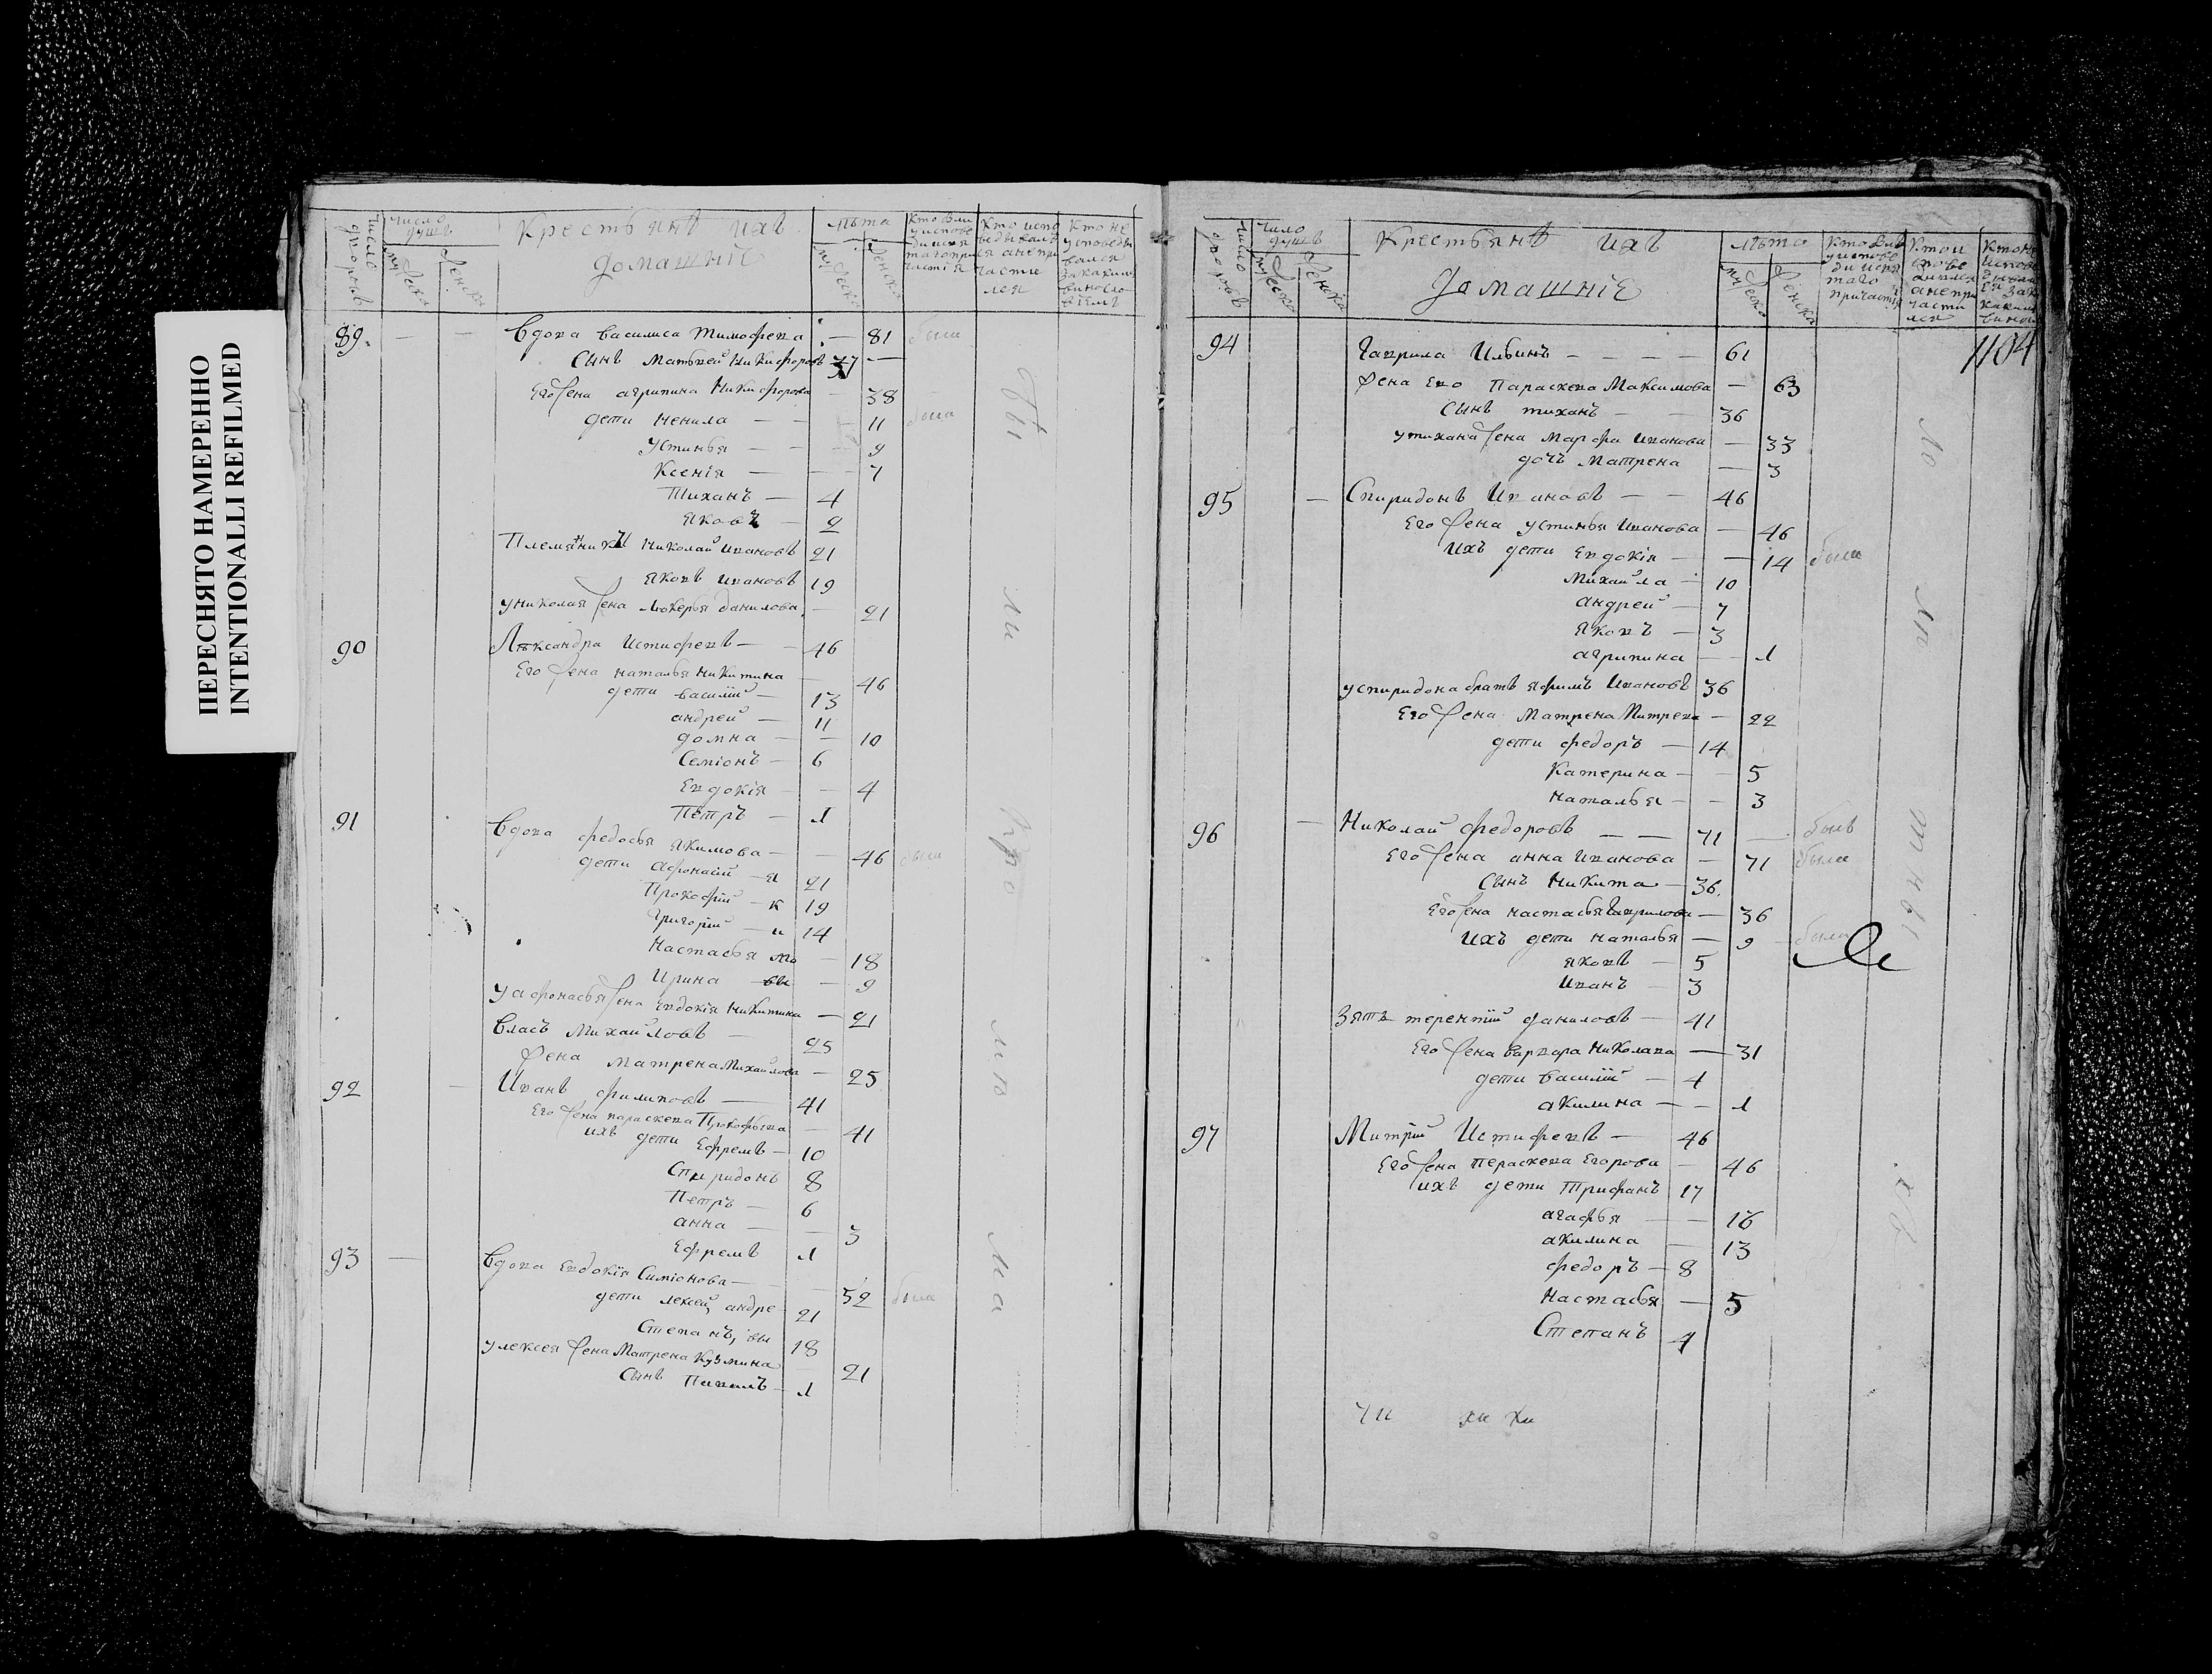 ПЕРЕСНЯТО НАМЕРЕННО
INTENTIONALLI REFILMED
число дворовъ
число душъ
мужеска
женска
Крестьянѣ ихъ
домашнїе
лѣта
мужеска
женска
89. — — Вдова Василиса Тимофѣева — 81 была
Сынъ Матвей Никифоровъ 37 —
Его жена агрипина Никифорова — 38
дети Ненила — — 11 была
Устинья — — 9
Ксенія — — 7
Тиханъ — 4
Яковъ — 2
Племянники Николай Ивановъ 21
Яковъ Ивановъ 19
у николая жена Лукерья данилова — 21
90 Александра Истифеевъ — 46
Его жена наталья Никитина — 46
дети василий — 13
андрей — 11
домна — — 10
Семіонъ — 6
Евдокія — — 4
Петръ — 1
91 Вдова федосья Якимова — — 46 была
дети Афонасий — я 21
Прокофий — к 19
Григорий — и 14
Настасья мо — 18
Ирина вы — 9
у афонасья жена Евдокія Никитина — 21
Власъ Михайловъ — 25
жена Матрена Михайлова — 25
92 — Иванъ филиповъ — 41
Его жена параскева Прокофьева — 41
ихъ дети Ефремъ — 10
Спиридонъ 8
Петръ — 6
анна — — 3
Ефремъ 1
93 — Вдова Евдокія Симіонова — 52 была
дети лексей, андре 21
Степанъ, вы 18
у лексея жена Матрена Кузмина 21
Сынъ Павелъ — 1
число дворовъ
число душъ
мужеска
женска
Крестьянѣ ихъ
домашнїе
лѣта
мужеска
женска
1104
94 Гаврила Ильинъ — — — — 61
жена Его Параскева Максимова — 63
Сынъ тиханъ — — 36
у тихана жена Марфа Иванова — 33
дочь Матрена — 3
95 — Спиридонъ Ивановъ — — 46
Его жена устинья Иванова — 46
ихъ дети Евдокія — — 14 была
Михайла — 10
андрей — 7
Яковъ — 3
агрипина — 1
у спиридона братъ яфимъ Ивановъ 36
Его жена Матрена Митрева — 22
дети федоръ — 14
Катерина — — 5
наталья — — 3
96 — Николай федоровъ — — 71 — былъ
Его жена анна Иванова — 71 была
Сынъ Никита — 36.
Его жена настасья Гаврилова — 36
ихъ дети наталья — 9 — была
яковъ — 5
Иванъ — 3
Зять терентий даниловъ — 41
Его жена варвара Николава — 31
дети василий — 4
акилина — — 1
97 Митрий Истифеевъ — 46
Его жена Пераскева Егорова — 46
ихъ дети Трифанъ 17
агафья — — 16
акилина — 13
федоръ — 8
Настасья — 5
Степанъ 4